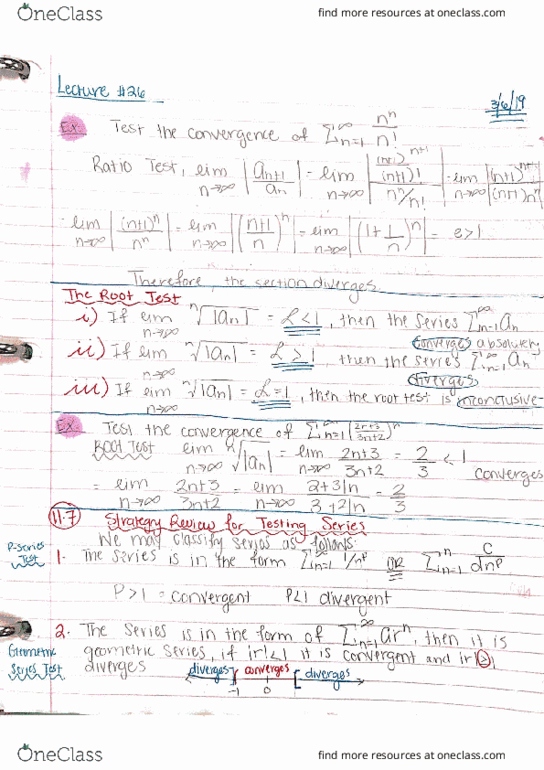 OneClass
find more resources at oneclass.com
Lecture #26
3/6/19
Ex. Test the convergence of ∑_{n=1}^∞ n^n/n!
Ratio Test, lim_{n→∞} |a_{n+1}/a_n| = lim_{n→∞} |((n+1)^{n+1}/(n+1)!)/(n^n/n!)| = lim_{n→∞} |(n+1)^{n+1}/(n+1)n^n|
= lim_{n→∞} |(n+1)^n/n^n| = lim_{n→∞} |((n+1)/n)^n| = lim_{n→∞} |(1+1/n)^n| = e>1
Therefore, the section diverges.
The Root Test
i) If lim_{n→∞} ⁿ√|an| = L<1, then the series ∑_{n=1}^∞ an
converges absolutely
ii) If lim_{n→∞} ⁿ√|an| = L>1, then the series ∑_{n=1}^∞ an
diverges
iii) If lim_{n→∞} ⁿ√|an| = L=1, then the root test is inconclusive
Ex. Test the convergence of ∑_{n=1}^∞ ((2n+3)/(3n+2))^n
Root Test lim_{n→∞} ⁿ√|an| = lim_{n→∞} (2n+3)/(3n+2) = 2/3 < 1
converges
= lim_{n→∞} (2n+3)/(3n+2) = lim_{n→∞} (2+3/n)/(3+2/n) = 2/3
11.7 Strategy Review for Testing Series
We may classify series as follows:
P-series Test 1. The series is in the form ∑_{n=1}^∞ 1/n^p OR ∑_{n=1}^n c/dn^p
P>1 = convergent P<1 divergent
2. The series is in the form of ∑_{n=1}^∞ ar^n, then it is
Geometric Series Test geometric series, if |r|<1 it is convergent and |r|≥1
diverges
diverges converges diverges
-1 0
OneClass
find more resources at oneclass.com